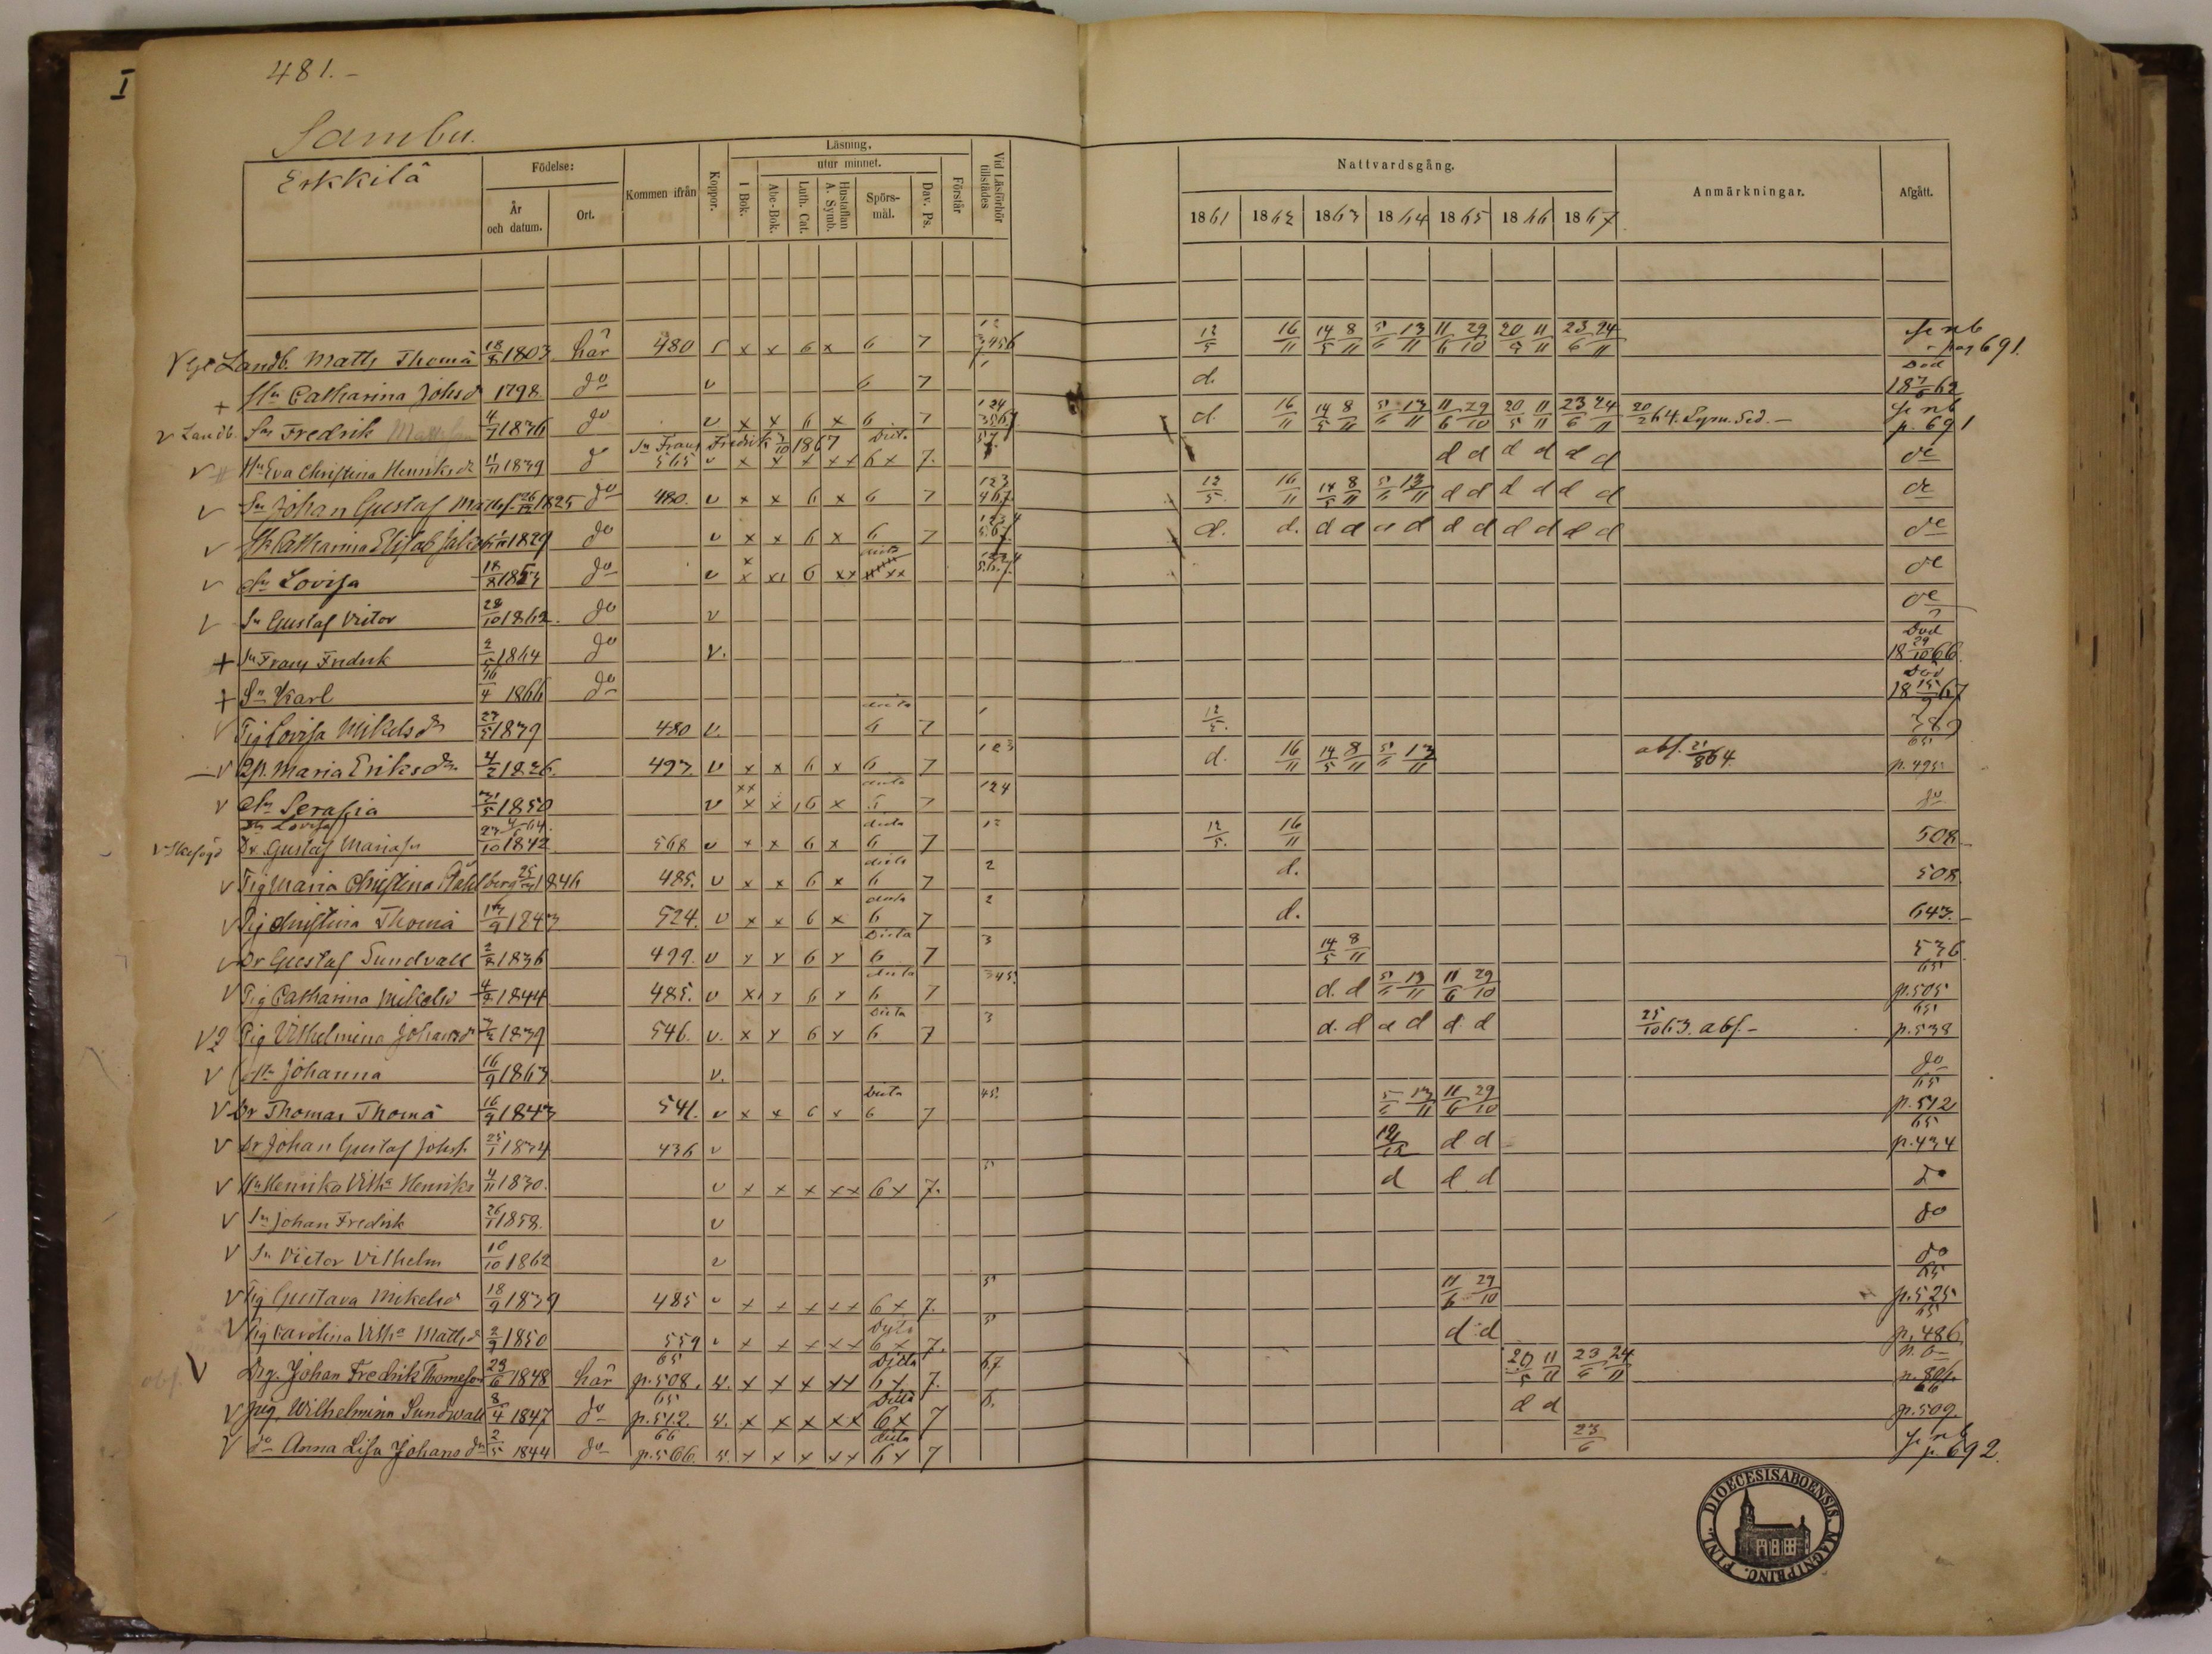 481.-
I
Sambu.
Erkkilä
Födelse:
År och datum.
Ort.
Kommen ifrån
Koppor.
Läsning.
I Bok.
utur minnet.
Abc-Bok.
Luth. Cat.
Hustaflan A. Symb.
Spörs-mål.
Dav. Ps.
Förstår
Vid Läsförhör tillstädes
Nattvardsgång.
1861 1862 1863 1864 1865 1866 1867
Anmärkningar.
Afgått.
Landb. Matts Thomä 18/8 1803 här 480 x x 6 x 6 7 3456 12/5 16/11 14/5 8/11 5/6 13/11 11/6 29/10 20/5 11/11 23/6 24/11 se nb pag 691.
+ Hu Catharina Johsdr 1798. do v 6 7 1 d. Död 62
v Landb. Sn Fredrik 4/7 1836 do v x x 6 x 6 7 124 3567 d. 16/11 14/5 8/11 5/6 13/11 11/6 29/10 20/5 11/11 23/6 24/11 20/2 64. Lysn. Sed.- se nb p. 691
Sn Frans Fredrik 1867 Dito
v Hu Eva Christina Henriksdr 11/11 1839 do 565 v x x x x x 6 x 7. 57. d d d d d d do
v Sn Johan Gustaf Mattss. 26/12 1825 do 480. v x x 6 x 6 7 123 467 12/5 16/11 14/5 8/11 5/6 13/11 d d d d d d do
v Hu Catharina Elisab 1829 do v x x 6 x 6 7 1234 567. d. d. d d d d d d d d d d do
v dr Lovisa 18/8 1853 do v x 6 x x 567 do
v Sn Gustaf Victor 28/10 1862. do v do
+ Sn Frans Fredrik 2/5 1864 do v. Död 18 29/10 66.
+ Sn Karl 16/4 1866 do Död 18 15/9 67
v Pig Lovisa Mikelsdr 27/5 1839 480 v. 6 7 1 12/5.
v Qp. Maria Eriksdr. 4/2 1826. 493 v x x 6 x 6 7 123 d. 16/11 14/5 8/11 5/6 13/11 abs. 21/8 64. p. 495.
v dr Serafia 1850 v x x 6 x 7 124 do
dr Lovisa
v Dr. Gustaf Mariass 23/10 1842 568 v x x 6 x 6 7 12 12/5. 16/11 508
v Pig Maria Christina Ståhlberg 1846 485. v x x 6 x 6 7 2 d. 508.
v Pig Christina Thomä 13/9 1843 524. v x x 6 x 6 7 2 d. 643.
v Dr Gustaf Sundvall 2/8 1836 499. v x x 6 x 6 7 3 14/5 8/11 536. 65
v Pig Catharina Mikelsd 4/2 1844 485. v x x 6 x 6 7 345. d. d 5/6 13/11 11/6 29/10 p. 505 65
v Pig Vilhelmina Johansdr 1839 546. v. x x 6 x 6 7 3 d. d d d d d 25/10 63. abs.- p. 538
v dr Johanna 16/9 1863 v. do 65
v Dr Thomas Thomä 16/9 1843 541. v x x 6 x 6 7 45. 5/6 13/11 11/6 29/10 p. 512 65
v Dr Johan Gustaf Johss. 25/1 1834 436 v d d p. 434
v Hu Henrika Vilha Henriks 4/11 1830. v x x x x x 6 x 7. 5 d d d do
v Sn Johan Fredrik 26/1 1858. v do
v Sn Victor Vilhelm 10/10 1862 v do 65
v Pig Gustava Mikelsd 18/9 1839 485 v x x x x x 6 x 7. 5 11/6 29/10 p. 525 65
v Pig Carolina Vilha Mattsd 2/9 1850 559 v x x x x x 6 x 7. 5 d d p. 486
abs. v Drg. Johan Fredrik Thomeson 23/6 1848 här 65 p. 508. v. x x x x x 6 x 7. 67 20/5 11/11 23/6 24/11
v pig. Wilhelmina Sundwall 8/4 1847 do 65 p. 512. v. x x x x x 6 x 7 6. d d 66 p. 509.
v do Anna Lisa Johansdr 2/5 1844 do 66 p. 566. v. x x x x x 6 x 7 23/6 se nb p. 692.
DIOECESIS ABOENSIS. MAGNI PRINC. FINL.